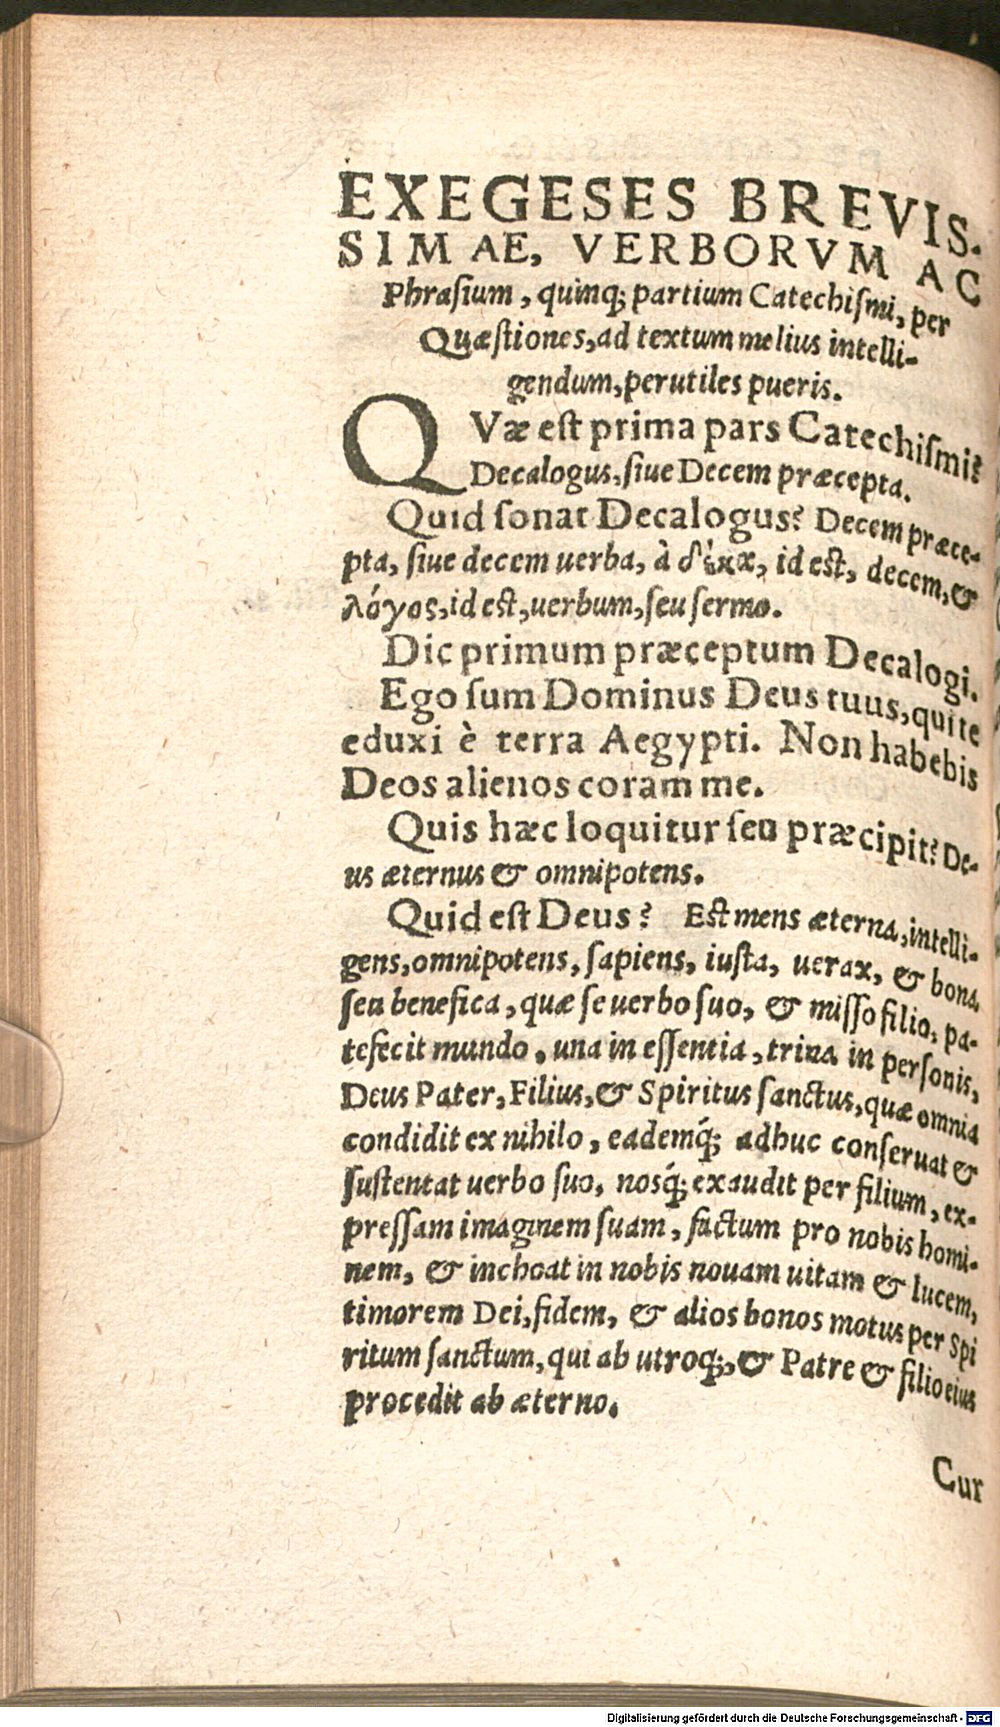 EXEGESES BREVIS-
SIMAE, VERBORVM AC
Phraſium, quinq; partium Catechiſmi, per
Quæſtiones, ad textum melius intelli-
gendum, perutiles pueris.
QVæ eſt prima pars Catechiſmi?
Decalogus, ſiue Decem præcepta.
Quid ſonat Decalogus? Decem præce-
pta, ſiue decem uerba, à δέκα, id eſt, decem, &
λόγος, id eſt, uerbum, ſeu ſermo.
Dic primum præceptum Decalogi.
Ego ſum Dominus Deus tuus, qui te
eduxi è terra Aegypti. Non habebis
Deos alienos coram me.
Quis hæc loquitur ſeu præcipit? De-
us æternus & omnipotens.
Quid eſt Deus? Eſt mens æterna, intelli-
gens, omnipotens, ſapiens, iuſta, uerax, & bona
ſeu benefica, quæ ſe uerbo ſuo, & miſſo filio, pa-
tefecit mundo, una in eſſentia, trina in perſonis,
Deus Pater, Filius, & Spiritus ſanctus, quæ omnia
condidit ex nihilo, eademq́; adhuc conſeruat &
ſuſtentat uerbo ſuo, nosq́; exaudit per filium, ex-
preſſam imaginem ſuam, factum pro nobis homi-
nem, & inchoat in nobis nouam uitam & lucem,
timorem Dei, fidem, & alios bonos motus per Spi
ritum ſanctum, qui ab utroq;, & Patre & filio eius
procedit ab æterno.
Cur
Digitalisierung gefördert durch die Deutsche Forschungsgemeinschaft - DFG